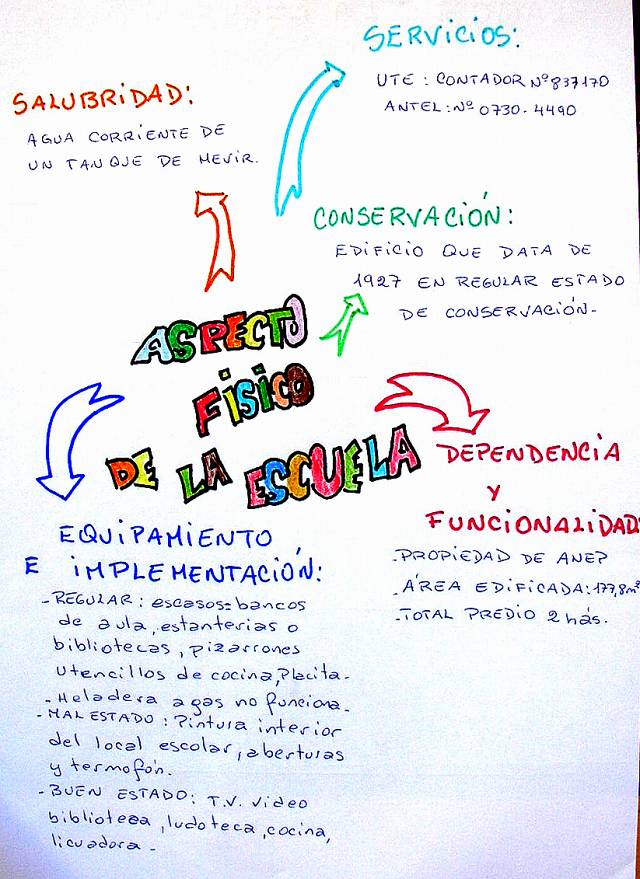 SERVICIOS:
UTE : CONTADOR Nº 837170
ANTEL : Nº 0730-4490
SALUBRIDAD:
AGUA CORRIENTE DE
UN TANQUE DE MEVIR.
CONSERVACIÓN:
EDIFICIO QUE DATA DE
1927 EN REGULAR ESTADO
DE CONSERVACIÓN-
ASPECTO
FÍSICO
DE LA ESCUELA
DEPENDENCIA
Y
FUNCIONALIDAD:
-PROPIEDAD DE ANEP
-ÁREA EDIFICADA: 177,8m²
-TOTAL PREDIO 2 hás.
EQUIPAMIENTO
E IMPLEMENTACIÓN:
-REGULAR : escasos= bancos
de aula, estanterias o
bibliotecas, pizarrones
utencillos de cocina, Placita-
-Heladera a gas no funciona-
-MAL ESTADO : Pintura interior
del local escolar, aberturas
y termofón.
-BUEN ESTADO: T.V. video
biblioteca, ludoteca, cocina,
licuadora-